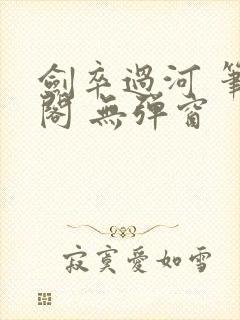 劍卒過河 筆
閣 無彈窗
寂寞愛如雪